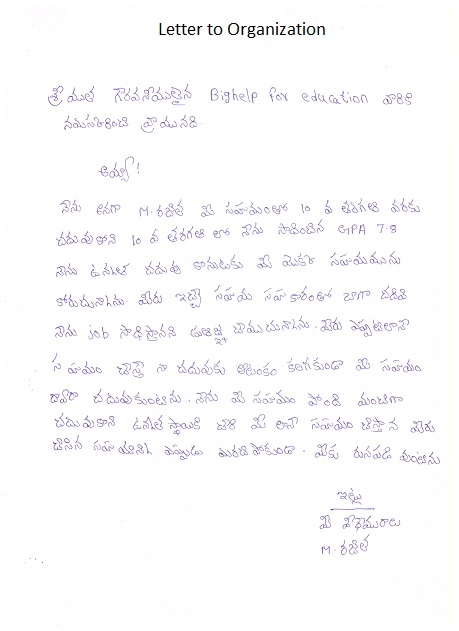 Letter to Organization
శ్రీయుత గౌరవనీయులైన Bighelp for education వారికి
నమస్కరించి వ్రాయునది.
అయ్యా!
నేను అనగా M. రజిత మీ సహాయంతో 10 వ తరగతి వరకు
చదువుకొని 10 వ తరగతి లో నేను సాధించిన GPA 7.8
నేను ఉన్నత చదువు కొనుటకు మీ యొక్క సహాయమును
కోరుచున్నాను. మీరు ఇచ్చే సహాయ సహకారంతో బాగా చదివి
నేను job సాధిస్తానని చేయుచున్నాను. మీరు ఎప్పటిలానే
సహాయం చేస్తే నా చదువుకు ఆటంకం కలగకుండా మీ సహాయం
ద్వారా చదువుకుంటాను. నేను మీ సహాయం పొంది మంచిగా
చదువుకొని ఉన్నత స్థాయికి చేరి మీ లానే సహాయం చేస్తాను మీరు
చేసిన సహాయాన్ని ఎప్పుడు మరచిపోకుండా. మీకు రుణపడి వుంటాను
ఇట్లు
మీ విధేయురాలు
M. రజిత